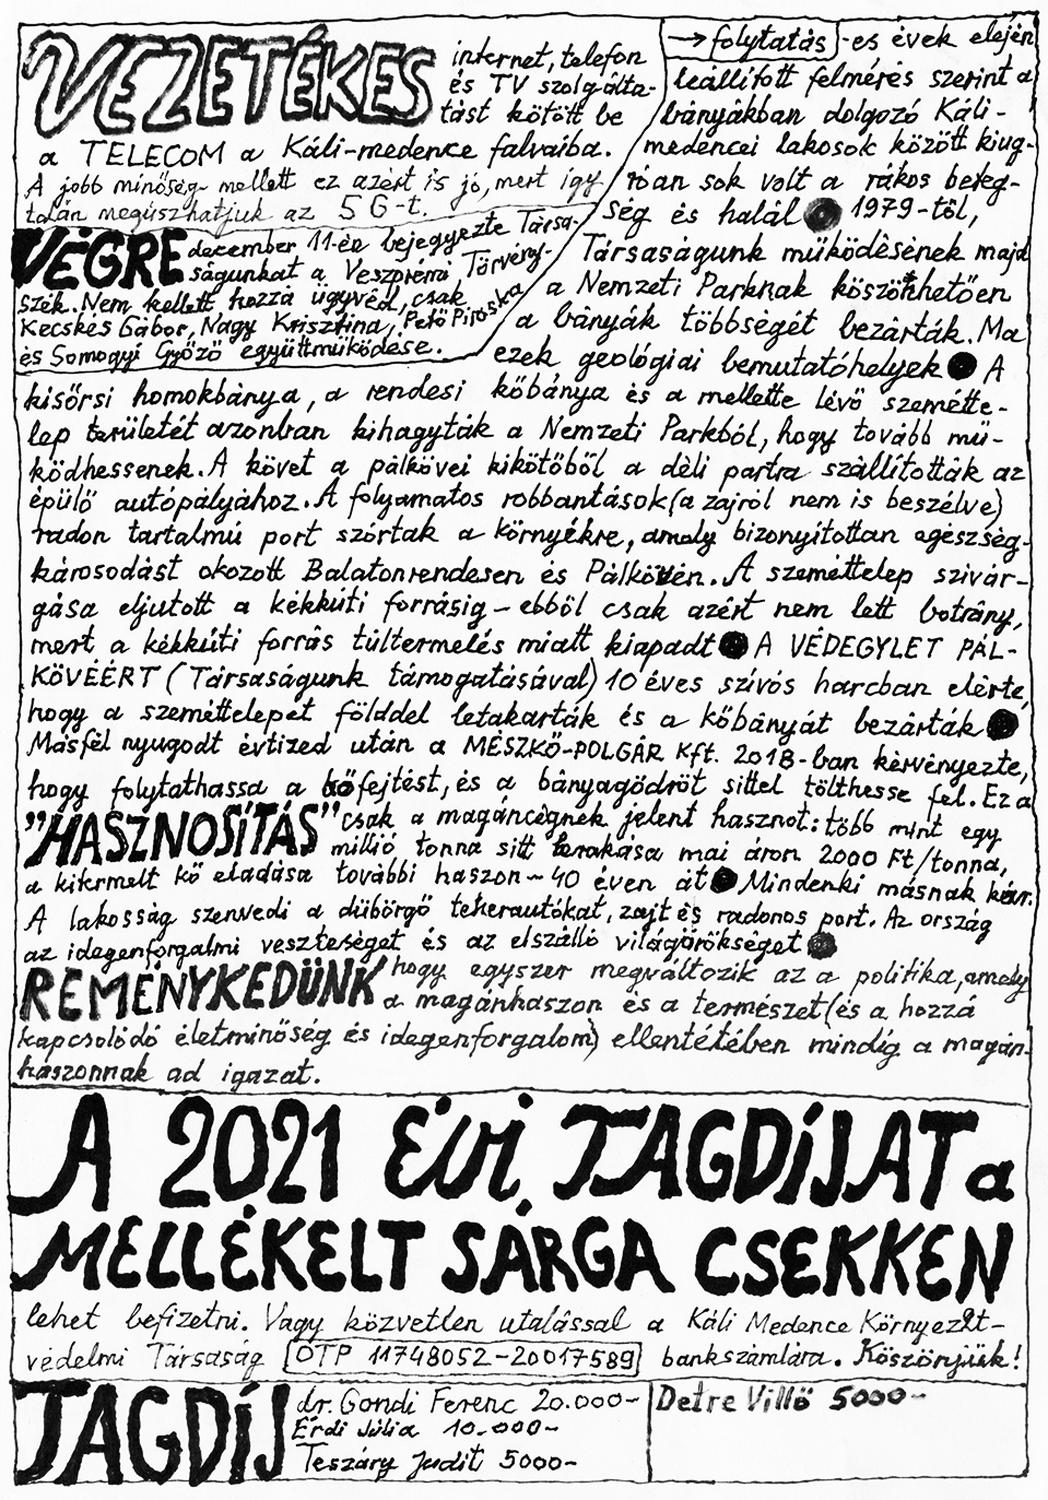 VEZETÉKES internet, telefon
és TV szolgálta-
tást kötött be
a TELECOM a Káli-medence falvaiba.
A jobb minőség mellett ez azért is jó, mert így
talán megúszhatjuk az 5G-t.
VÉGRE december 11-én bejegyezte Társa-
ságunkat a Veszprémi Törvény-
szék. Nem kellett hozzá ügyvéd, csak
Kecskés Gábor, Nagy Krisztina, Pető Piroska
és Somogyi Győző együttműködése.
→ folytatás -es évek elején
leállított felmérés szerint a
bányákban dolgozó Káli-
medencei lakosok között kiug-
róan sok volt a rákos beteg-
ség és halál ● 1979-től,
Társaságunk működésének majd
a Nemzeti Parknak köszönhetően
a bányák többségét bezárták. Ma
ezek geológiai bemutatóhelyek ● A
kisőrsi homokbánya, a rendesi kőbánya és a mellette lévő szemétte-
lep területét azonban kihagyták a Nemzeti Parkból, hogy tovább mű-
ködhessenek. A követ a pálkövei kikötőből a déli partra szállították az
épülő autópályához. A folyamatos robbantások (a zajról nem is beszélve)
radon tartalmú port szórtak a környékre, amely bizonyítottan egészség-
károsodást okozott Balatonrendesen és Pálkövén. A szeméttelep szivár-
gása eljutott a kékkúti forrásig – ebből csak azért nem lett botrány,
mert a kékkúti forrás túltermelés miatt kiapadt ● A VÉDEGYLET PÁL-
KÖVÉÉRT (Társaságunk támogatásával) 10 éves szívós harcban elérte,
hogy a szeméttelepet földdel letakarták és a kőbányát bezárták ●
Másfél nyugodt évtized után a MÉSZKŐ-POLGÁR Kft. 2018-ban kérvényezte,
hogy folytathassa a kőfejtést, és a bányagödröt sittel tölthesse fel. Ez a
"HASZNOSÍTÁS" csak a magáncégnek jelent hasznot: több mint egy
millió tonna sitt lerakása mai áron 2000 Ft/tonna,
a kitermelt kő eladása további haszon – 40 éven át ● Mindenki másnak kár.
A lakosság szenvedi a dübörgő teherautókat, zajt és radonos port. Az ország
az idegenforgalmi veszteséget és az elszálló világörökséget ●
REMÉNYKEDÜNK hogy egyszer megváltozik az a politika, amely
a magánhaszon és a természet (és a hozzá
kapcsolódó életminőség és idegenforgalom) ellentétében mindig a magán-
haszonnak ad igazat.
A 2021 ÉVI TAGDÍJAT a
MELLÉKELT SÁRGA CSEKKEN
lehet befizetni. Vagy közvetlen utalással a Káli Medence Környezet-
védelmi Társaság OTP 11748052-20017589 bankszámlára. Köszönjük!
TAGDÍJ dr. Gondi Ferenc 20.000-
Érdi Júlia 10.000-
Teszáry Judit 5000-
Detre Villő 5000-